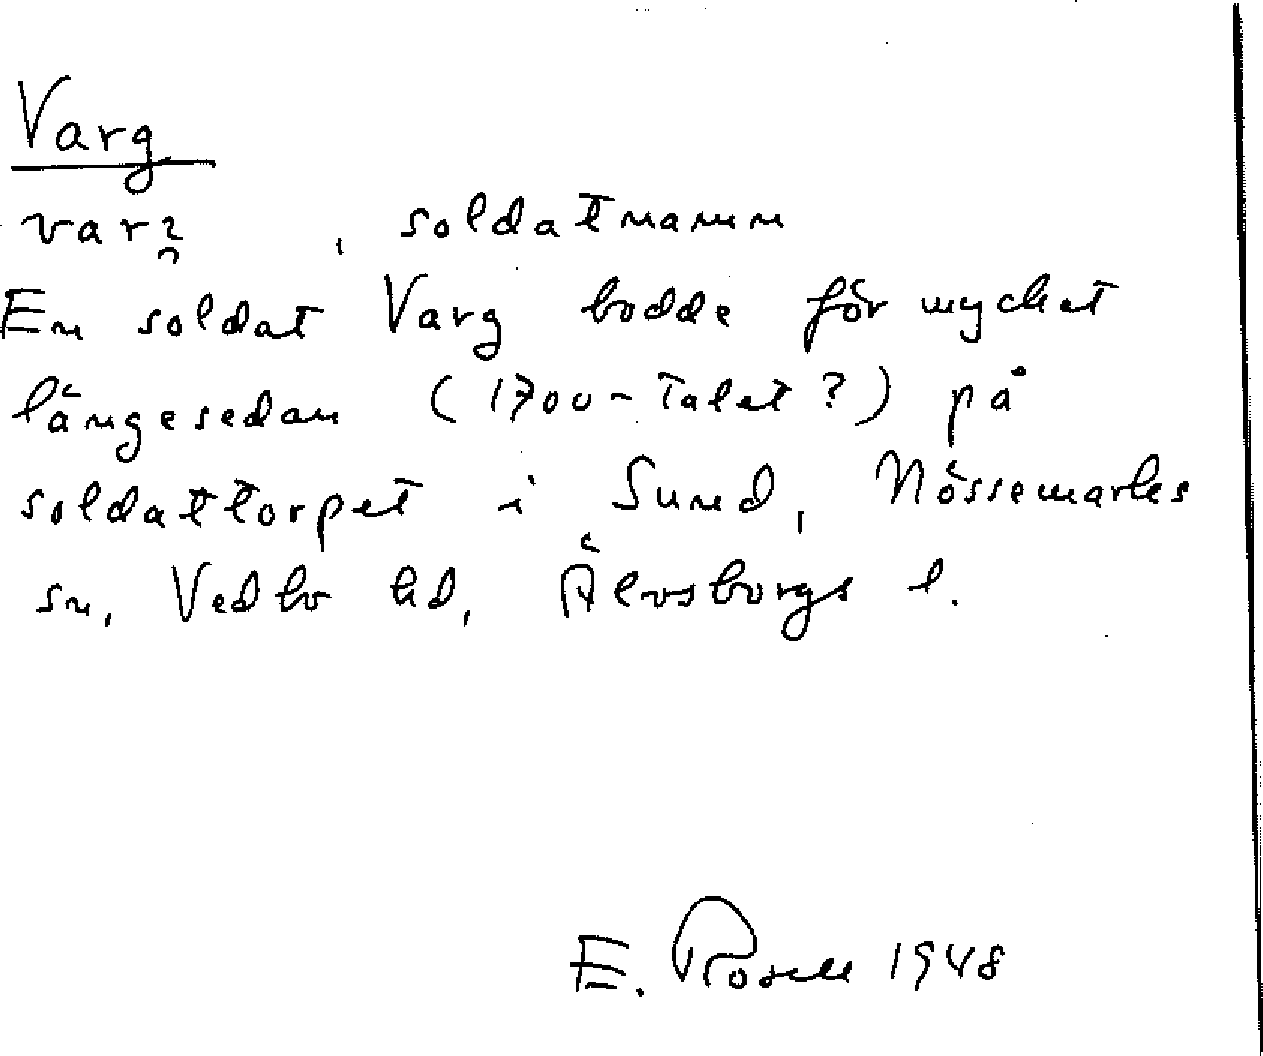 Varg
, soldatnamn
En soldat Varg bodde för mycket
längesedan (1700-talet?) på
soldattorpet i Sund, Nössemarks
sn, Vedbo hd, Älvsborgs l.
E. Rosell 1948